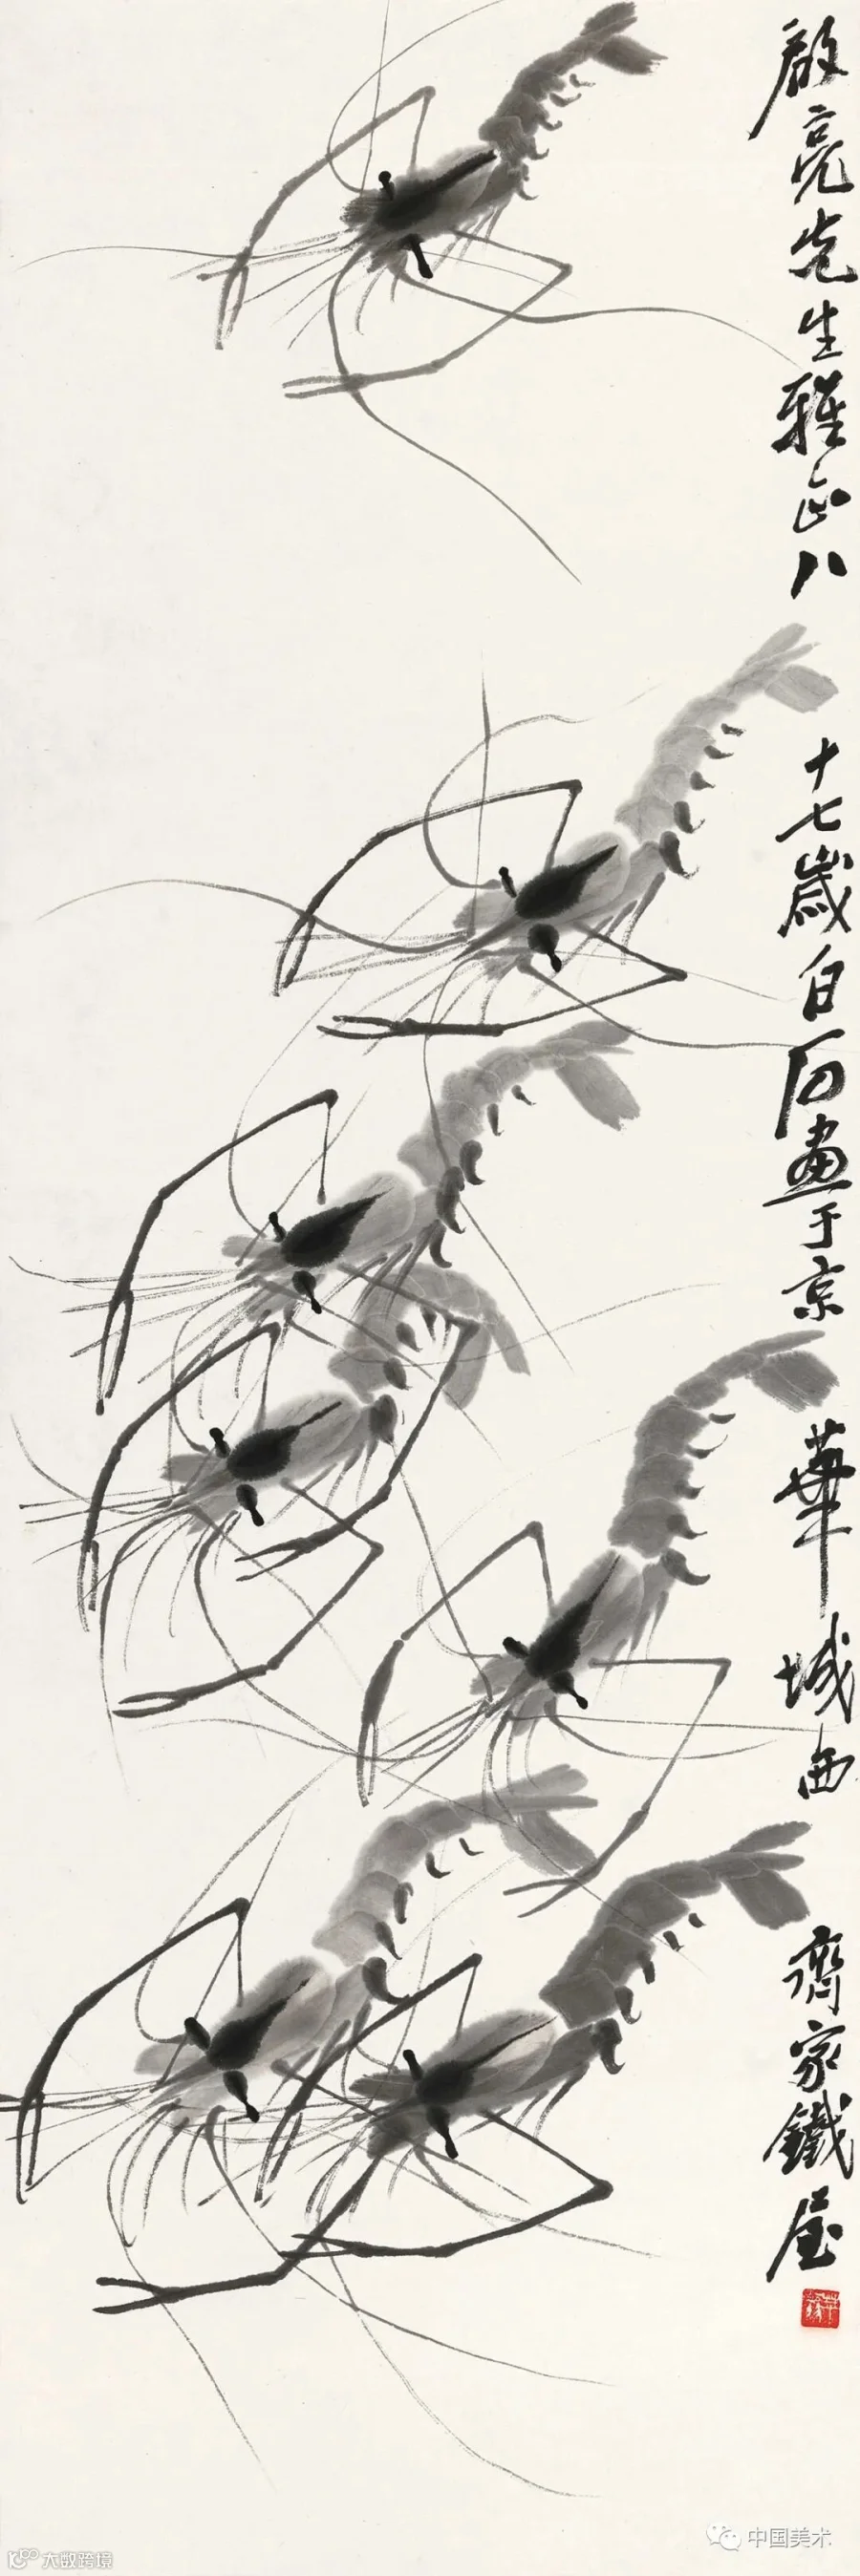 啟亮先生雅正八十七歲白石畫于京華城西齊家鐵屋
中国美术
大数跨境